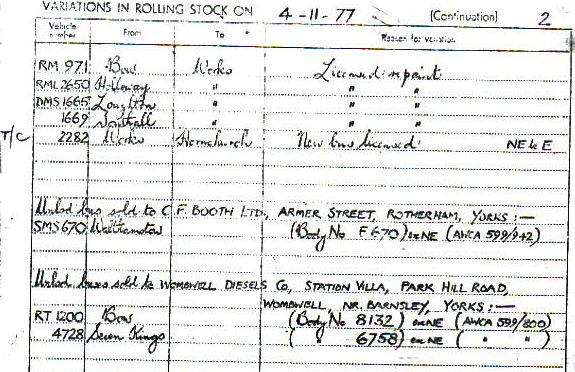 VARIATIONS IN ROLLING STOCK ON 4-11-77 (Continuation) 2
Vehicle number From To Reason for variation
RM 971 Bow Works Licensed: repaint
RML 2650 Holloway " " "
DMS 1665 Loughton " " "
1669 Southall " " "
T/C 2282 Works Hornchurch New bus licensed: NE to E
Unlcd bus sold to C.F. BOOTH LTD., ARMER STREET, ROTHERHAM, YORKS :—
SMS 670 Walthamstow (Body No F 670) ex NE (AWCA 599/942)
Unlcd buses sold to WOMBWELL DIESELS Co, STATION VILLA, PARK HILL ROAD,
WOMBWELL NR. BARNSLEY, YORKS :—
RT 1200 Bow (Body No 8132) ex NE (AWCA 599/800)
4728 Seven Kings ( " 6758) ex NE ( " " )